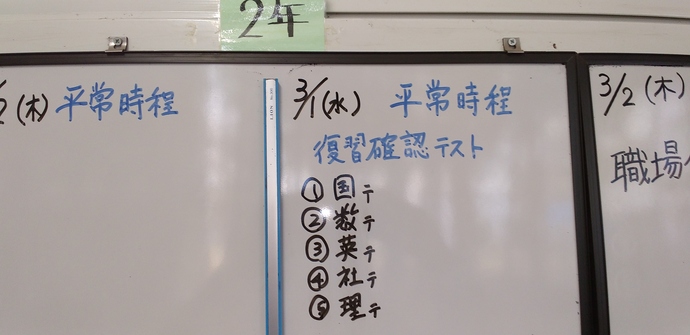 2年
2(木) 平常時程
3/1(水) 平常時程
復習確認テスト
① 国テ
② 数テ
③ 英テ
④ 社テ
⑤ 理テ
3/2(木)
職場